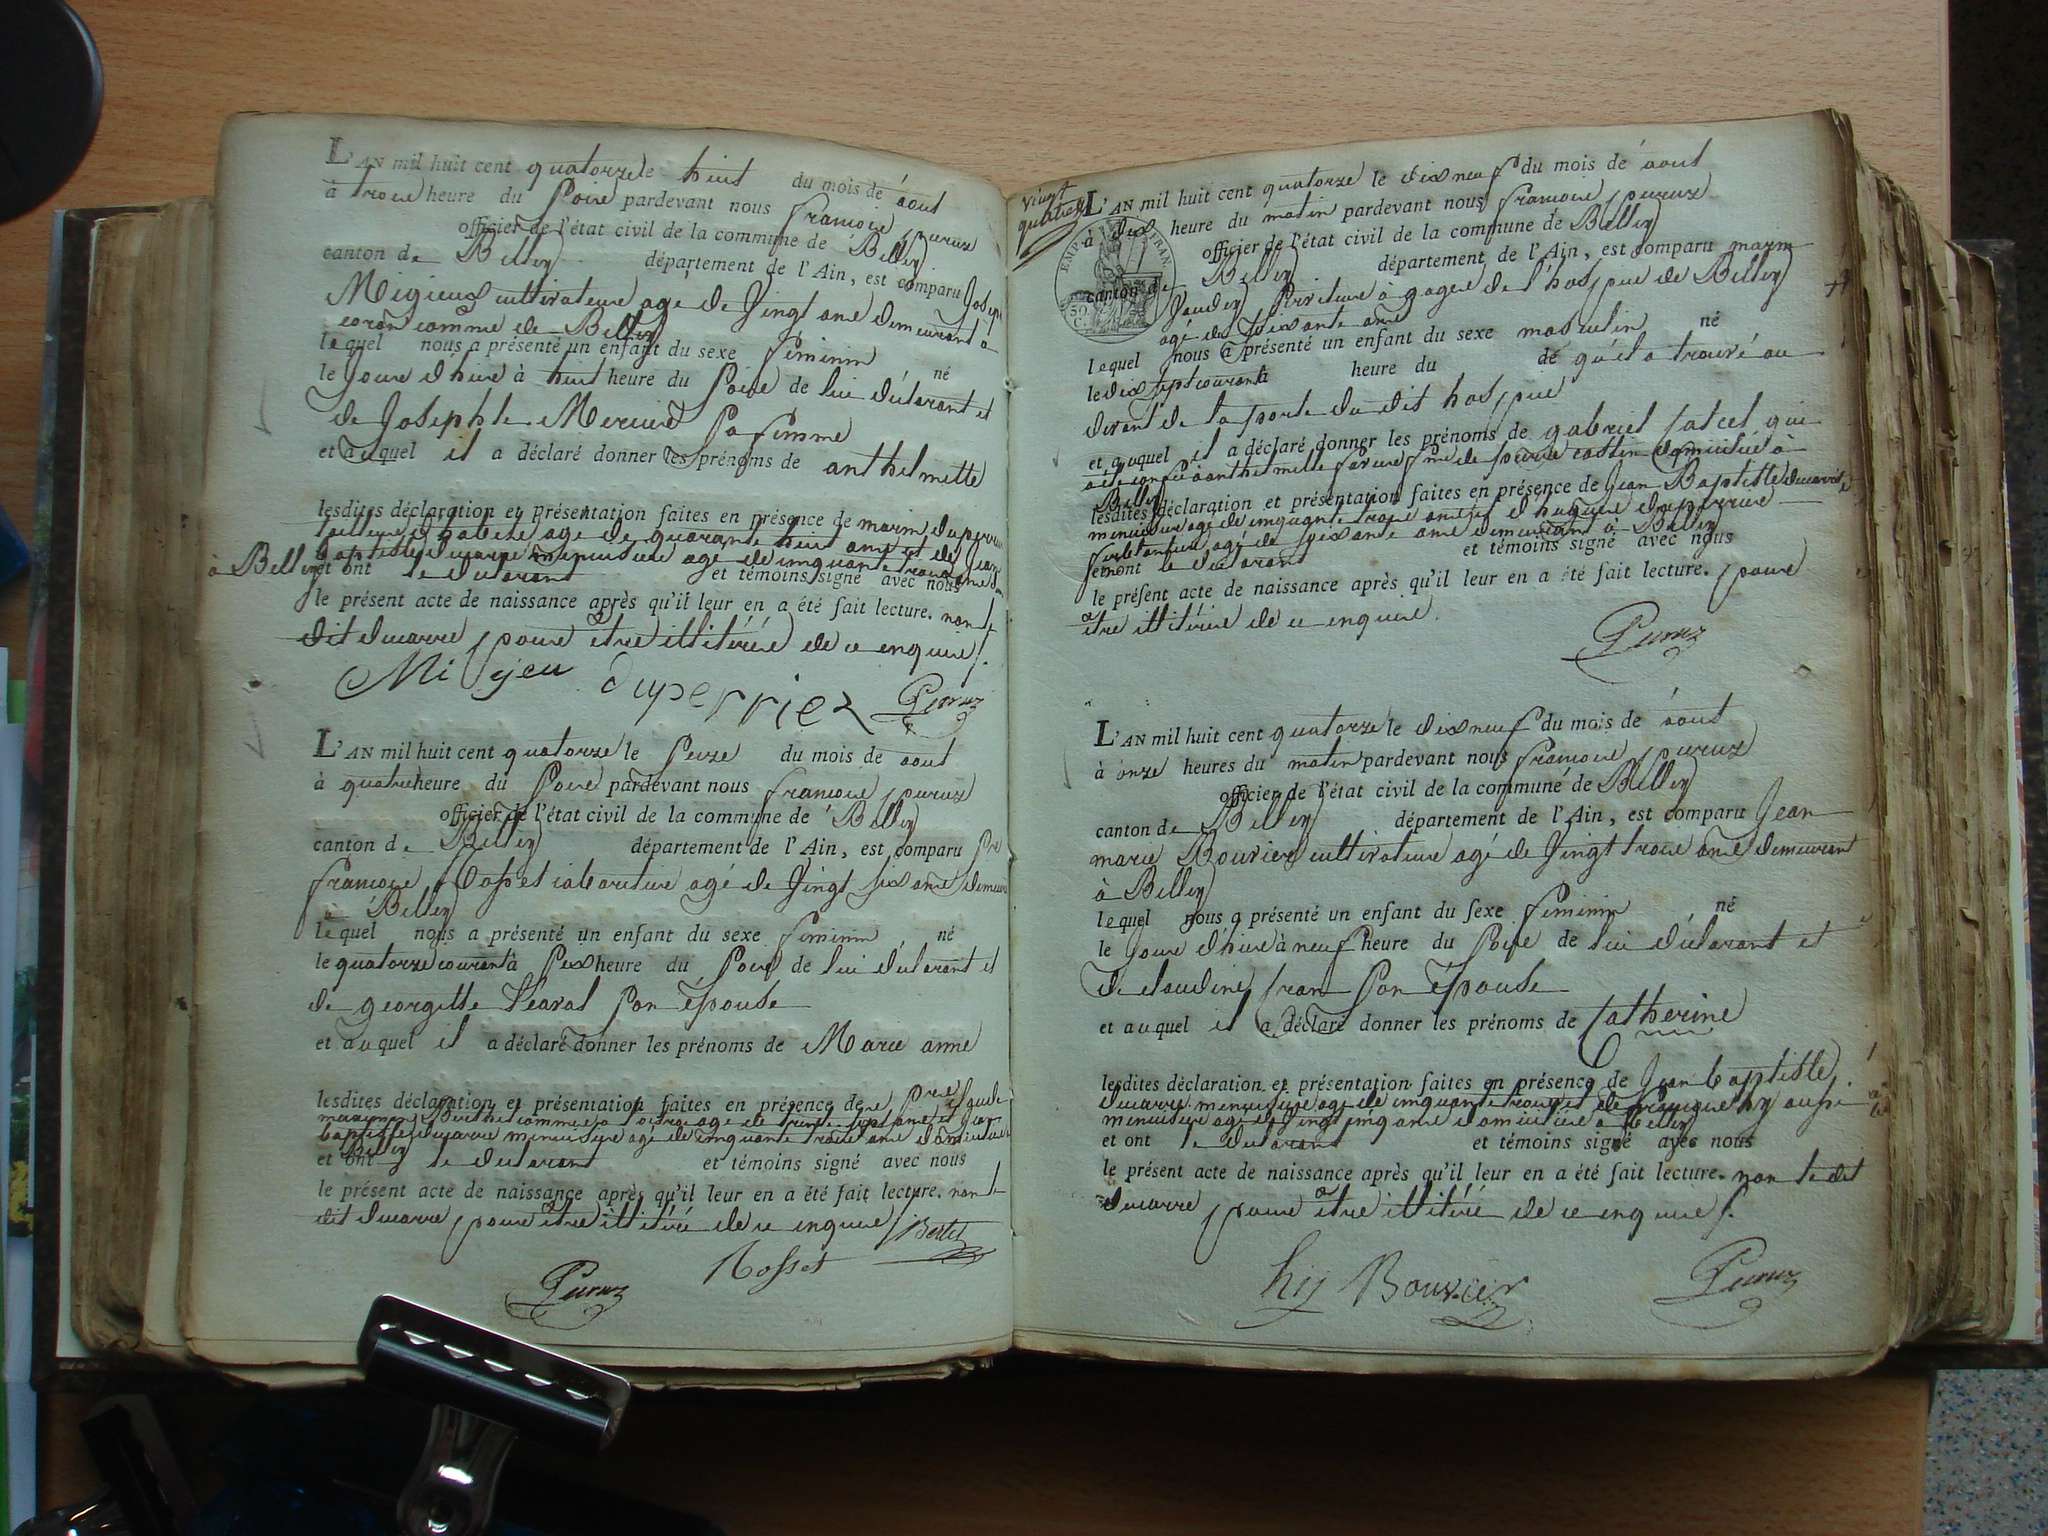 L'AN mil huit cent quatorze le huit du mois de aout
à trois heure du Soire pardevant nous francois peruz
officier de l'état civil de la commune de Belley
canton de Belley département de l'Ain, est comparu Joseph
Migieux cultivateur age de Vingt ans demeurant a
coron comme de Belley
lequel nous a présenté un enfant du sexe feminin né
le Jour d'huis à huit heure du Soire de lui déclarant et
de Josephte Mercier Sa femme
et auquel il a déclaré donner les prénoms de anthelmette
lesdites déclaration et présentation faites en présence de marin duperrier
tailleur d'habits age de quarante huit ans et de Jean
Baptiste ducarre menuisier age de cinquante trois ans
à Belley et ont le declarant et témoins signé avec nous
le présent acte de naissance après qu'il leur en a été fait lecture. non le
dit ducarre pour être illitéré de ce enquis
Migieu duperrier Peruz
L'AN mil huit cent quatorze le Seize du mois de aout
à quatre heure du Soire pardevant nous francois peruz
officier de l'état civil de la commune de Belley
canton de Belley département de l'Ain, est comparu
francois Rosset age de Vingt six ans
à Belley
lequel nous a présenté un enfant du sexe feminin né
le quatorze courant à Six heure du Soire de lui declarant et
de georgette son épouse
et auquel il a déclaré donner les prénoms de Marie anne
lesdites déclaration et présentation faites en présence de
age de trente sept ans et Jean
baptiste ducarre menuisier age de cinquante trois ans
Belley
et ont le declarant et témoins signé avec nous
le présent acte de naissance après qu'il leur en a été fait lecture. non le
dit ducarre pour être illitéré de ce enquis
Peruz Rosset
vingt
quatre
L'AN mil huit cent quatorze le dix neuf du mois de aout
à dix heure du matin pardevant nous francois peruz
officier de l'état civil de la commune de Belley
canton de Belley département de l'Ain, est comparu marin
à gages de l'hospice de Belley
agé de Soixante ans
lequel nous a présenté un enfant du sexe masculin né
le dix sept courant à heure du de qu'il a trouvé au
devant de la porte du dit hospice
et auquel il a déclaré donner les prénoms de gabriel qui
a été confié à anthelmette femme de domicilié à
Belley
lesdites déclaration et présentation faites en présence de Jean Baptiste ducarre
menuisier age de cinquante trois ans et d'hugues duperrier
agé de soixante ans demeurant à Belley
et ont le declarant et témoins signé avec nous
le présent acte de naissance après qu'il leur en a été fait lecture. pour
être illitéré de ce enquis
Peruz
L'AN mil huit cent quatorze le dix neuf du mois de aout
à onze heures du matin pardevant nous francois peruz
officier de l'état civil de la commune de Belley
canton de Belley département de l'Ain, est comparu Jean
marie Bouvier cultivateur agé de Vingt trois ans demeurant
à Belley
lequel nous a présenté un enfant du sexe feminin né
le Jour d'huis à neuf heure du Soire de lui déclarant et
de claudine son épouse
et auquel il a déclaré donner les prénoms de Catherine
lesdites déclaration et présentation faites en présence de Jean baptiste
ducarre menuisier age de cinquante trois et de francois hij aussi
menuisier age de Vingt cinq ans domicilié à Belley
et ont le declarant et témoins signé avec nous
le présent acte de naissance après qu'il leur en a été fait lecture. non le dit
ducarre pour être illitéré de ce enquis
hij Bouvier Peruz